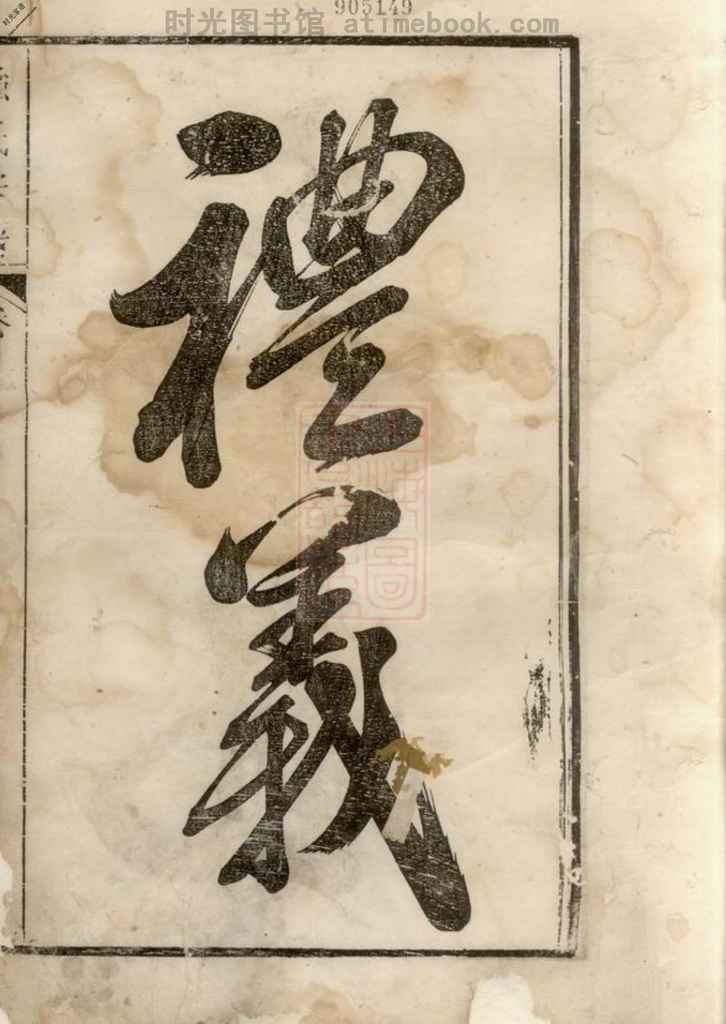 905149
时光图书馆 atimebook.com
禮義